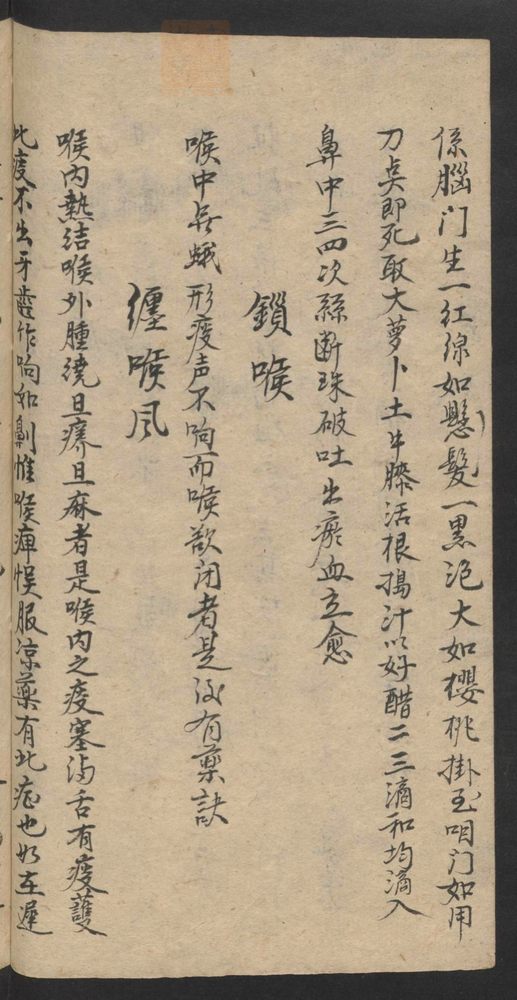 係腦门生一红線如懸髮一黒泡大如櫻桃掛至咽门如用
刀奌即死取大萝卜土牛膝活根搗汁以好醋二三滴和均滴入
鼻中三四次絲断珠破吐出瘀血立愈
鎖喉
喉中無蛾形痰声不响而喉欲闭者是後有藥訣
纏喉风
喉内熱结喉外腫繞且痒且麻者是喉内之痰塞满舌有痰護
此痰不出牙齒作响如劓惟喉痺悮服凉藥有此症也如在遲